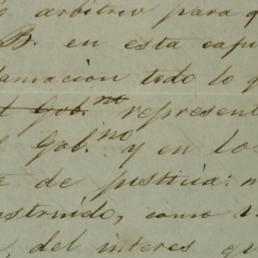 arbitrio para q
B. en esta capi
lamacion todo lo q
l Gob.no represent
l Gob.no y en lo
e de justicia: n
struido, como
del interes qu